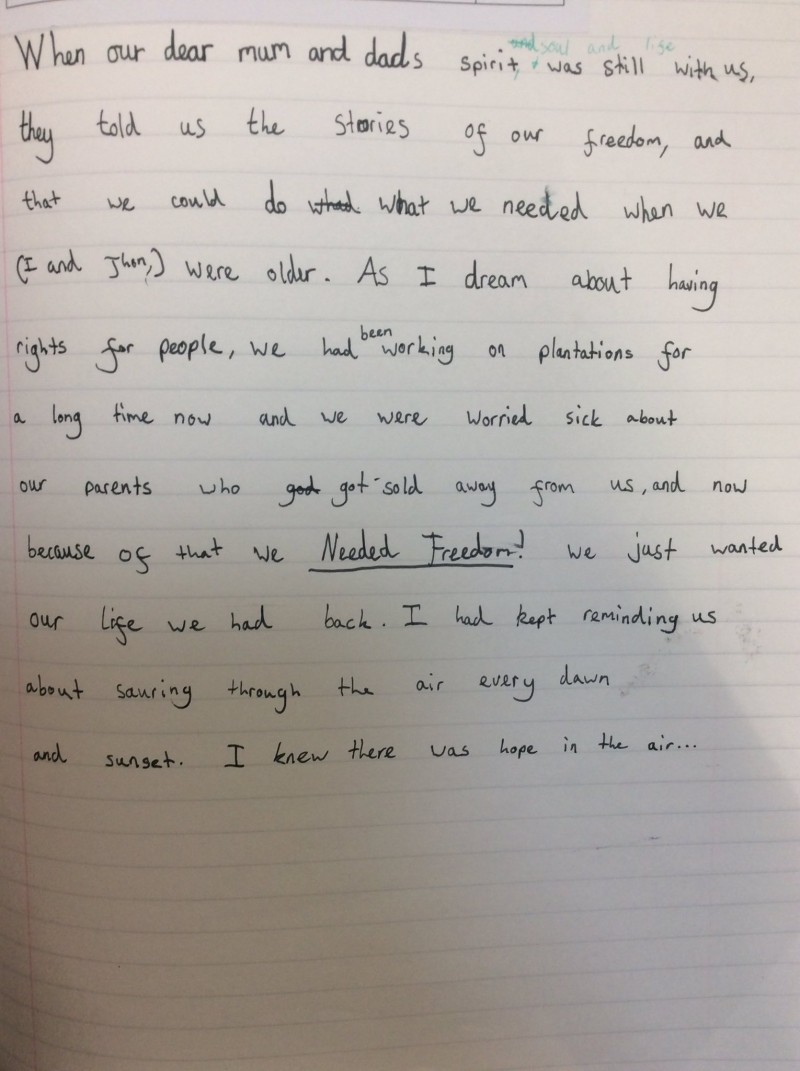 When our dear mum and dads spirit, soul and life was still with us,
they told us the stories of our freedom, and
that we could do what we needed when we
(I and Jhon,) were older. As I dream about having
rights for people, we had been working on plantations for
a long time now and we were worried sick about
our parents who got sold away from us, and now
because of that we Needed Freedom! we just wanted
our life we had back. I had kept reminding us
about sauring through the air every dawn
and sunset. I knew there was hope in the air...